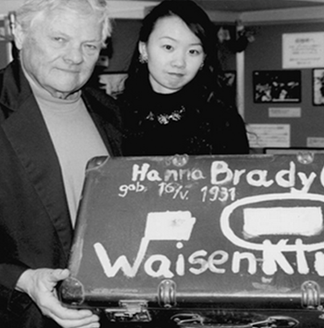 Hanna Brady
gab. 16/V. 1931
WaisenKi